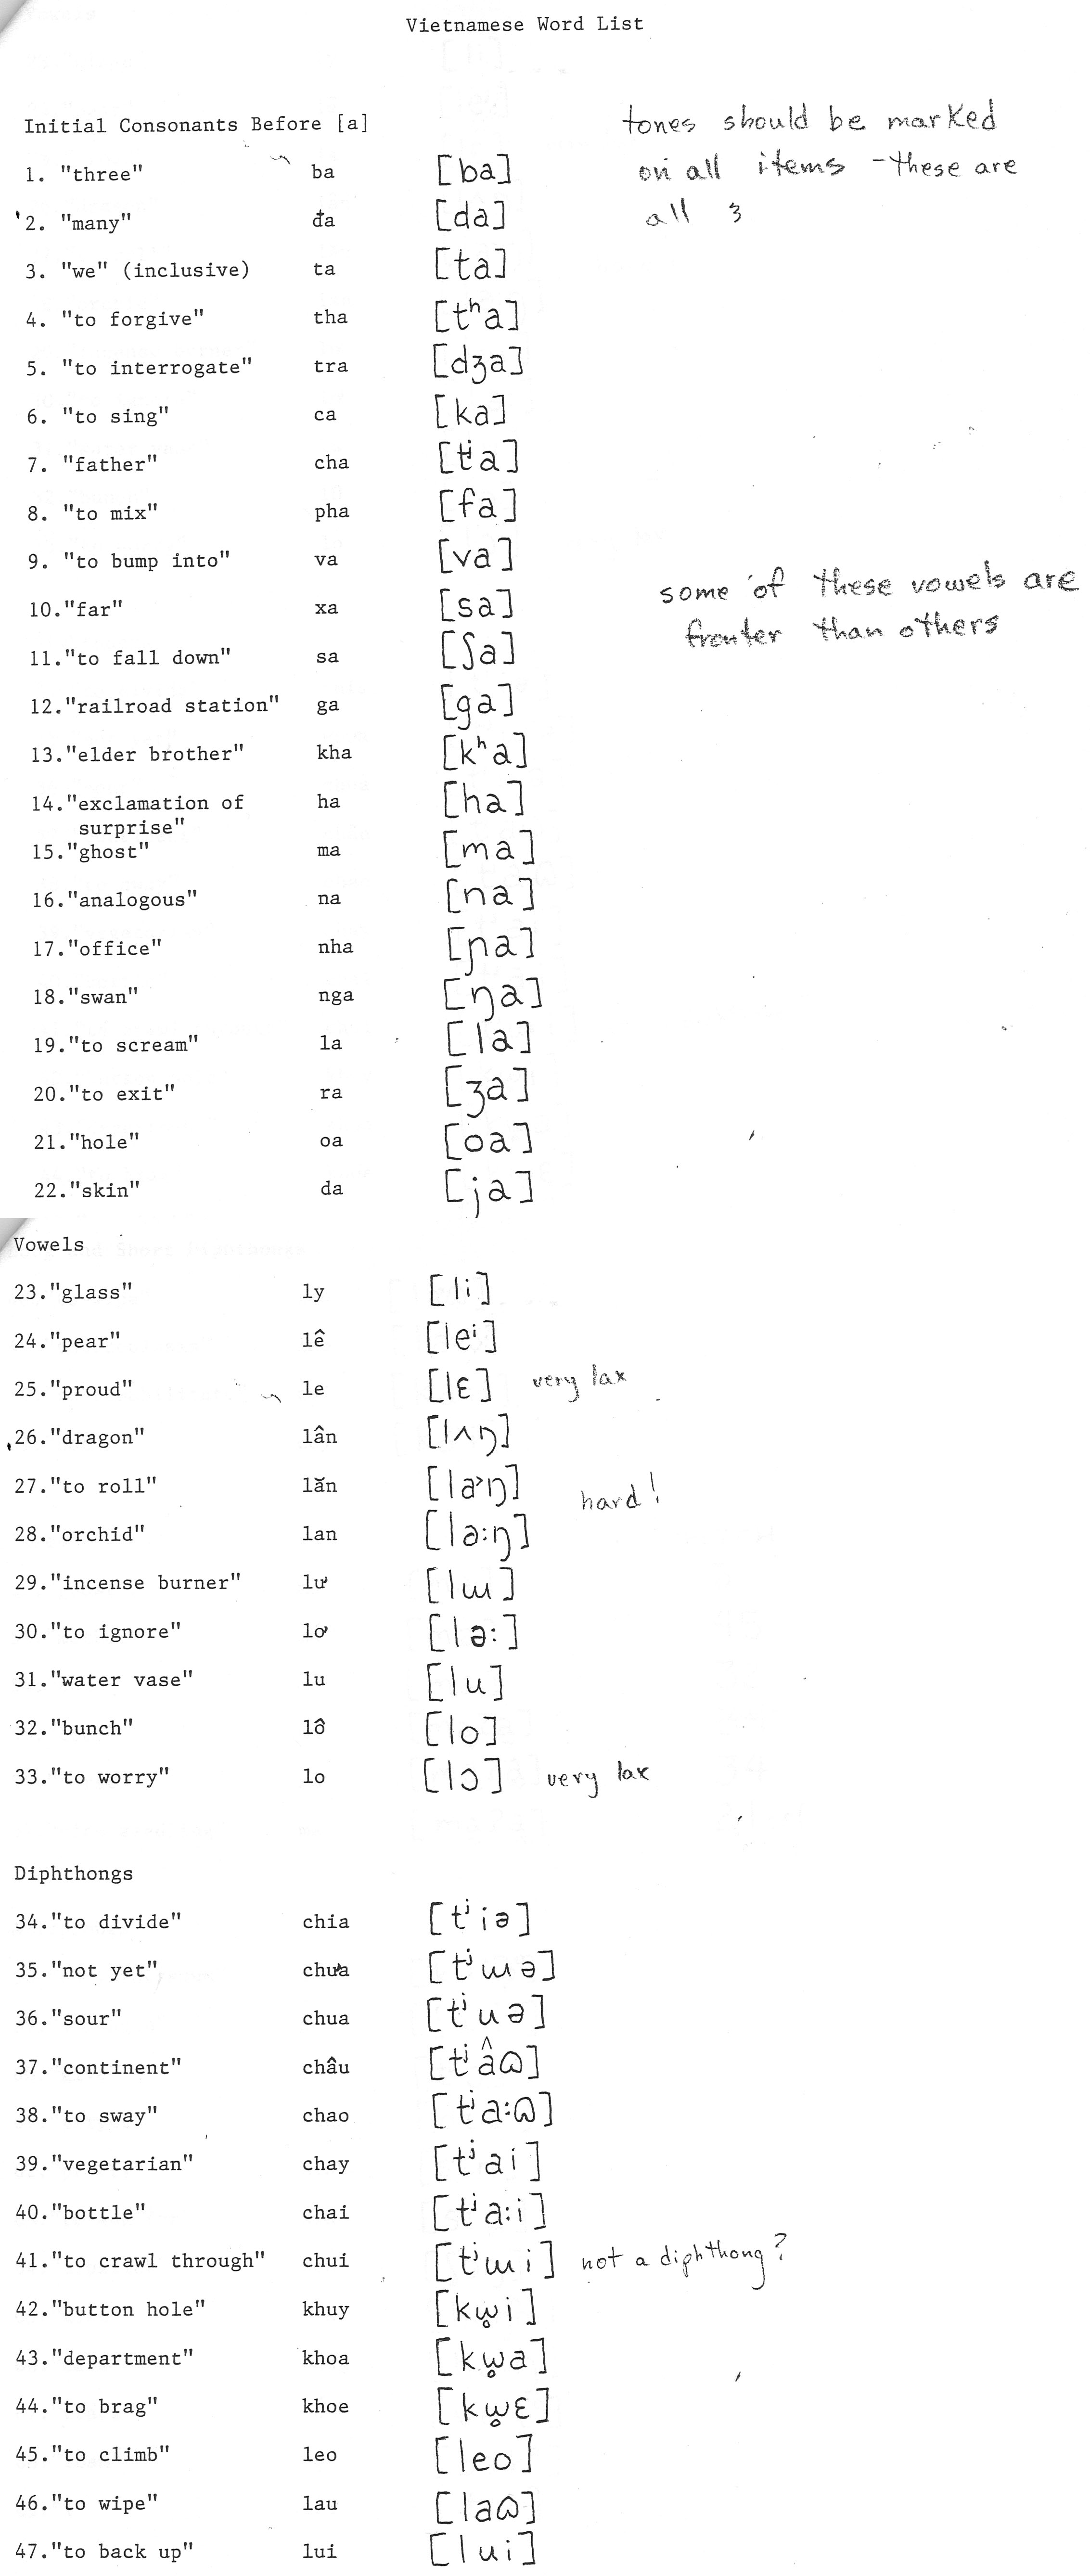 Vietnamese Word List
Initial Consonants Before [a]
tones should be marked
on all items - these are
all 3
1. "three" ba [ba]
2. "many" đa [da]
3. "we" (inclusive) ta [ta]
4. "to forgive" tha [tʰa]
5. "to interrogate" tra [dʒa]
6. "to sing" ca [ka]
7. "father" cha [tʲa]
8. "to mix" pha [fa]
9. "to bump into" va [va]
some of these vowels are
fronter than others
10."far" xa [sa]
11."to fall down" sa [ʃa]
12."railroad station" ga [ga]
13."elder brother" kha [kʰa]
14."exclamation of ha [ha]
surprise"
15."ghost" ma [ma]
16."analogous" na [na]
17."office" nha [ɲa]
18."swan" nga [ŋa]
19."to scream" la [la]
20."to exit" ra [ʒa]
21."hole" oa [oa]
22."skin" da [ja]
Vowels
23."glass" ly [li]
24."pear" lê [leⁱ]
25."proud" le [lɛ] very lax
26."dragon" lân [lʌŋ]
27."to roll" lăn [la˃ŋ] hard!
28."orchid" lan [la:ŋ]
29."incense burner" lư [lɯ]
30."to ignore" lơ [lə:]
31."water vase" lu [lu]
32."bunch" lô [lo]
33."to worry" lo [lɔ] very lax
Diphthongs
34."to divide" chia [tʲiə]
35."not yet" chưa [tʲɯə]
36."sour" chua [tʲuə]
37."continent" châu [tʲâɷ]
38."to sway" chao [tʲa:ɷ]
39."vegetarian" chay [tʲai]
40."bottle" chai [tʲa:i]
41."to crawl through" chui [tʲɯi] not a diphthong?
42."button hole" khuy [kw̥i]
43."department" khoa [kw̥a]
44."to brag" khoe [kw̥ɛ]
45."to climb" leo [leo]
46."to wipe" lau [laɷ]
47."to back up" lui [lui]